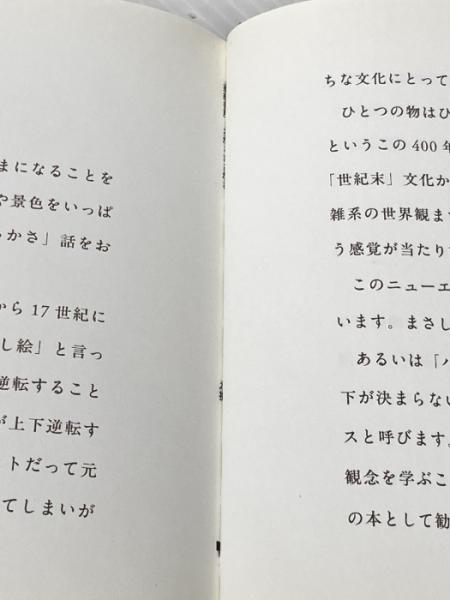 まになることを
や景色をいっぱ
かさ」話をお
から17世紀に
し絵」と言っ
逆転すること
が上下逆転す
トだって元
てしまいが
ちな文化にとって
ひとつの物はひ
というこの400年
「世紀末」文化か
雑系の世界観ま
う感覚が当たり
このニューエ
います。まさし
あるいは「
下が決まらない
スと呼びます。
観念を学ぶこ
の本として勧